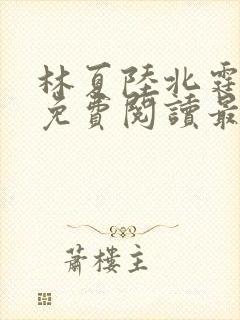 林夏陸北霆
免費閱讀最
蕭樓主